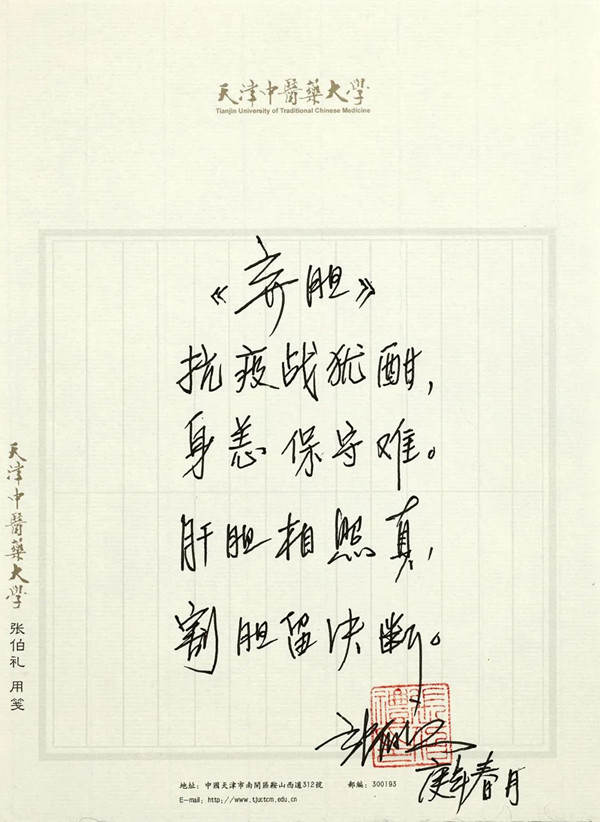 天津中醫藥大學
Tianjin University of Traditional Chinese Medicine
《弃胆》
抗疫战犹酣，
身恙保守难。
肝胆相照真，
割胆留决断。
张伯礼
庚子年春月
天津中醫藥大學 张伯礼 用笺
地址: 中國天津市南開區鞍山西道312號 郵編: 300193
E-mail: http://www.tjutcm.edu.cn